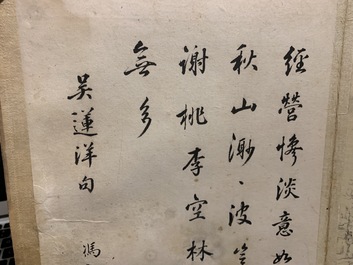 經營慘淡意如
秋山渺、波
謝桃李空林
無多
吳蓮洋句
馮